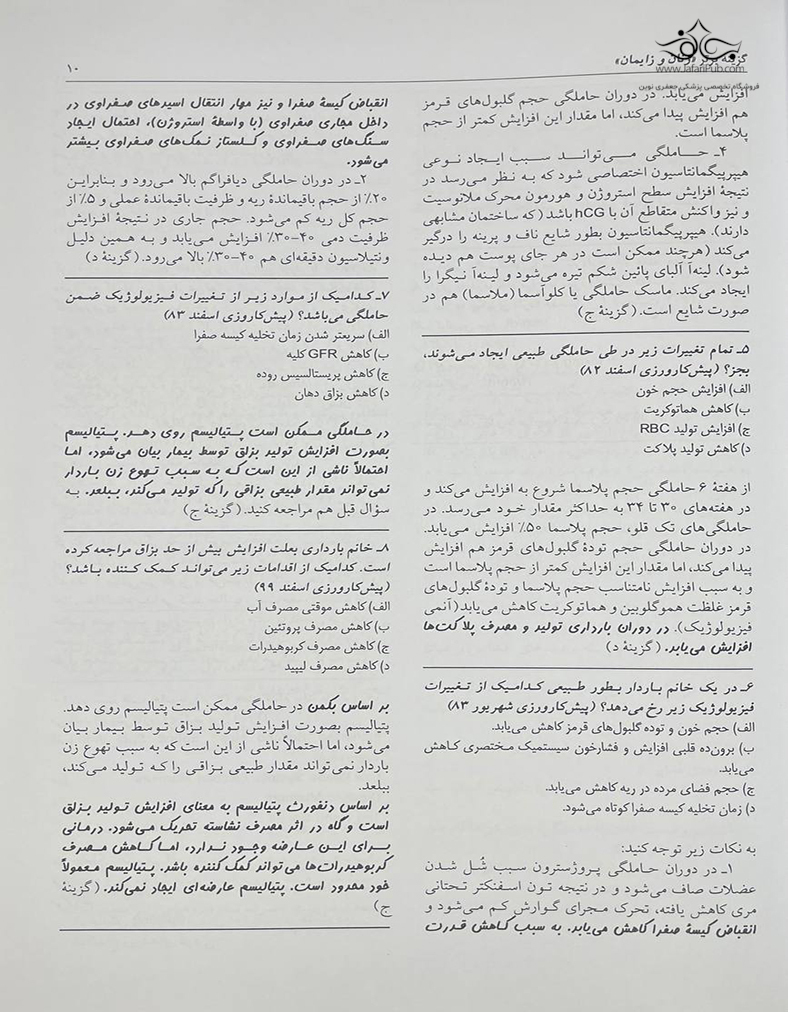 گزینه برتر «زنان و زایمان»
۱۰
www.JafariPub.com
فروشگاه تخصصی پزشکی جعفری نوین
افزایش می‌یابد. در دوران حاملگی حجم گلبول‌های قرمز
هم افزایش پیدا می‌کند، اما مقدار این افزایش کمتر از حجم
پلاسما است.
۴ـ حـامـلگی مـی‌توانـد سـبب ایـجاد نـوعی
هیپرپیگمانتاسیون اختصاصی شود که به نظر می‌رسد در
نتیجهٔ افزایش سطح استروژن و هورمون محرک ملانوسیت
و نیز واکنش متقاطع آن با hCG باشد (که ساختمان مشابهی
دارند). هیپرپیگمانتاسیون بطور شایع ناف و پرینه را درگیر
می‌کند (هرچند ممکن است در هر جای پوست هم دیده
شود). لینه‌آ آلبای پائین شکم تیره می‌شود و لینه‌آ نیگرا را
ایجاد می‌کند. ماسک حاملگی یا کلوآسما (ملاسما) هم در
صورت شایع است. (گزینهٔ ج)
۵ـ تمام تغییرات زیر در طی حاملگی طبیعی ایجاد می‌شوند،
بجز؟ (پیش‌کارورزی اسفند ۸۲)
الف) افزایش حجم خون
ب) کاهش هماتوکریت
ج) افزایش تولید RBC
د) کاهش تولید پلاکت
از هفتهٔ ۶ حاملگی حجم پلاسما شروع به افزایش می‌کند و
در هفته‌های ۳۰ تا ۳۴ به حداکثر مقدار خود می‌رسد. در
حاملگی‌های تک قلو، حجم پلاسما ۵۰٪ افزایش می‌یابد.
در دوران حاملگی حجم تودهٔ گلبول‌های قرمز هم افزایش
پیدا می‌کند، اما مقدار این افزایش کمتر از حجم پلاسما است
و به سبب افزایش نامتناسب حجم پلاسما و تودهٔ گلبول‌های
قرمز غلظت هموگلوبین و هماتوکریت کاهش می‌یابد (آنمی
فیزیولوژیک). در دوران بارداری تولید و مصرف پلاکت‌ها
افزایش می‌یابد. (گزینهٔ د)
۶ـ در یک خانم باردار بطور طبیعی کدامیک از تغییرات
فیزیولوژیک زیر رخ می‌دهد؟ (پیش‌کارورزی شهریور ۸۳)
الف) حجم خون و توده گلبول‌های قرمز کاهش می‌یابد.
ب) برون‌ده قلبی افزایش و فشارخون سیستمیک مختصری کاهش
می‌یابد.
ج) حجم فضای مرده در ریه کاهش می‌یابد.
د) زمان تخلیه کیسه صفرا کوتاه می‌شود.
به نکات زیر توجه کنید:
۱ـ در دوران حاملگی پروژسترون سبب شُل شدن
عضلات صاف می‌شود و در نتیجه تون اسفنکتر تحتانی
مری کاهش یافته، تحرک مجرای گوارش کم می‌شود و
انقباض کیسهٔ صفرا کاهش می‌یابد. به سبب کاهش قدرت
انقباض کیسهٔ صفرا و نیز مهار انتقال اسیدهای صفراوی در
داخل مجاری صفراوی (با واسطهٔ استروژن)، احتمال ایجاد
سنگ‌های صفراوی و کلستاز نمک‌های صفراوی بیشتر
می‌شود.
۲ـ در دوران حاملگی دیافراگم بالا می‌رود و بنابراین
۲۰٪ از حجم باقیماندهٔ ریه و ظرفیت باقیماندهٔ عملی و ۵٪ از
حجم کل ریه کم می‌شود. حجم جاری در نتیجهٔ افزایش
ظرفیت دمی ۴۰-۳۰٪ افزایش می‌یابد و به همین دلیل
ونتیلاسیون دقیقه‌ای هم ۴۰-۳۰٪ بالا می‌رود. (گزینهٔ د)
۷ـ کدامیک از موارد زیر از تغییرات فیزیولوژیک ضمن
حاملگی می‌باشد؟ (پیش‌کاروزی اسفند ۸۳)
الف) سریعتر شدن زمان تخلیه کیسه صفرا
ب) کاهش GFR کلیه
ج) کاهش پریستالسیس روده
د) کاهش بزاق دهان
در حاملگی ممکن است پتیالیسم روی دهد. پتیالیسم
بصورت افزایش تولید بزاق توسط بیمار بیان می‌شود، اما
احتمالاً ناشی از این است که به سبب تهوع زن باردار
نمی‌تواند مقدار طبیعی بزاقی را که تولید می‌کند، ببلعد. به
سؤال قبل هم مراجعه کنید. (گزینهٔ ج)
۸ـ خانم بارداری بعلت افزایش بیش از حد بزاق مراجعه کرده
است. کدامیک از اقدامات زیر می‌تواند کمک کننده باشد؟
(پیش‌کارورزی اسفند ۹۹)
الف) کاهش موقتی مصرف آب
ب) کاهش مصرف پروتئین
ج) کاهش مصرف کربوهیدرات
د) کاهش مصرف لیپید
بر اساس بکمن در حاملگی ممکن است پتیالیسم روی دهد.
پتیالیسم بصورت افزایش تولید بزاق توسط بیمار بیان
می‌شود، اما احتمالاً ناشی از این است که به سبب تهوع زن
باردار نمی‌تواند مقدار طبیعی بزاقی را که تولید می‌کند،
ببلعد.
بر اساس دنفورث پتیالیسم به معنای افزایش تولید بزاق
است و گاه در اثر مصرف نشاسته تحریک می‌شود. درمانی
برای این عارضه وجود ندارد، اما کاهش مصرف
کربوهیدرات‌ها می‌تواند کمک کننده باشد. پتیالیسم معمولاً
خود محدود است. پتیالیسم عارضه‌ای ایجاد نمی‌کند. (گزینهٔ
ج)